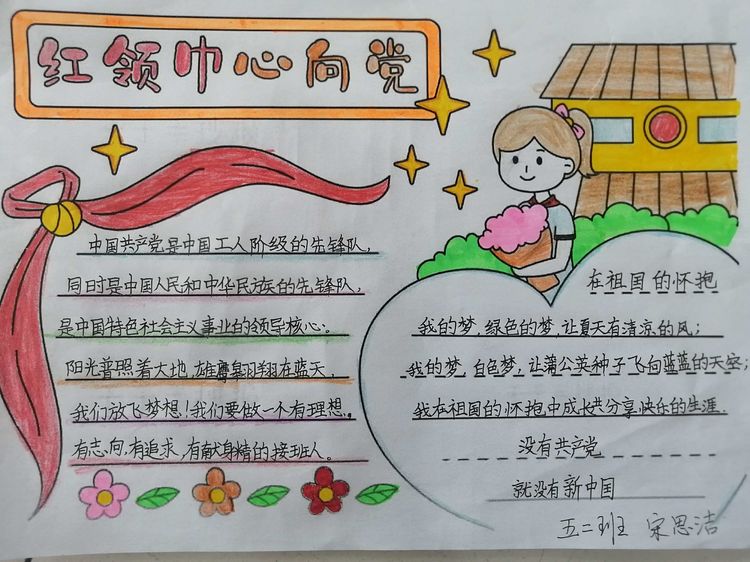 红领巾心向党
中国共产党是中国工人阶级的先锋队，
同时是中国人民和中华民族的先锋队，
是中国特色社会主义事业的领导核心。
阳光普照着大地，雄尊翱翔在蓝天，
我们放飞梦想！我们要做一个有理想。
有志向，有追求，有献身精的接班人。
在祖国的怀抱
我的梦，绿色的梦，让夏天有清凉的风；
我的梦，白色梦，让蒲公英种子飞向蓝蓝的天空；
我在祖国的怀抱中成长共分享快乐的生涯.
没有共产党
就没有新中国
五二班 宋思洁